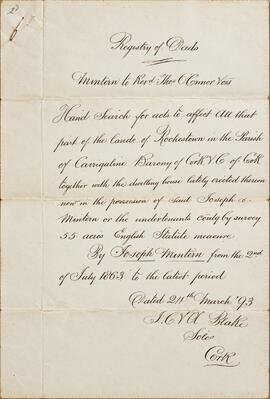 Registry of Deeds
Mintern to Revd. Thos. O'Connor
Hand Search for acts to affect All that
part of the lands of Rochestown in the Parish
of Carrigaline Barony of Cork & C of Cork
together with the dwelling house lately erected thereon
now in the possession of said Joseph
Mintern or the undertenants contg by survey
55 acres English Statute measure
By Joseph Mintern from the 2nd
of July 1863 to the latest period
Dated 24th March '93
Blake
Solrs
Cork